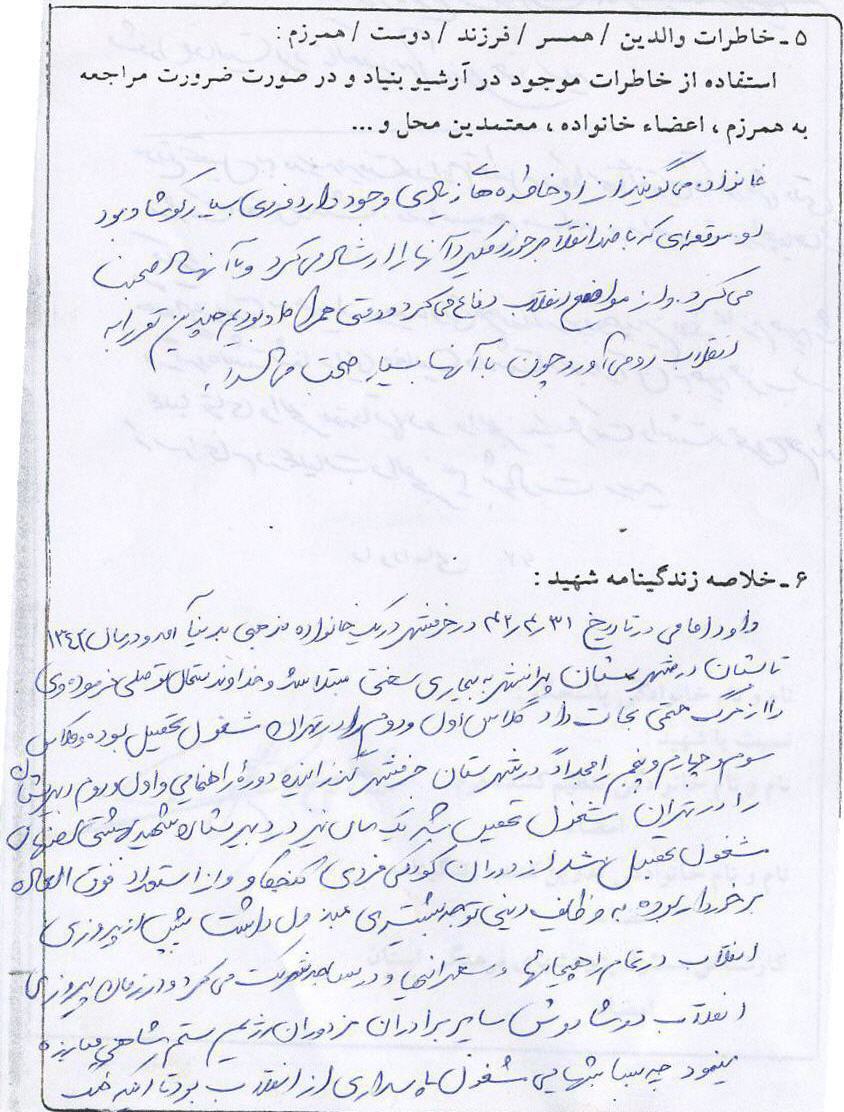 ۵ ـ خاطرات والدین / همسر / فرزند / دوست / همرزم :
استفاده از خاطرات موجود در آرشیو بنیاد و در صورت ضرورت مراجعه
به همرزم ، اعضاء خانواده ، معتمدین محل و ...
خانواده می گویند از او خاطره های زیادی وجود دارد فردی بسیار کوشا بود
و موقعه ای که با ضد انقلاب برخورد میکرد آنها را ارشاد می کرد و با آنها صحبت
می کرد. و از مواضع انقلاب دفاع می کرد و وقتی همراه او بودیم چندین نفر را به
انقلاب رو می آورد چون با آنها بسیار صحبت
۶ ـ خلاصه زندگینامه شهید :
داود امامی در تاریخ ۴۲/۴/۳۱ در خرمشهر در یک خانواده مذهبی بدنیا آمد و در سال ۱۳۴۲
تابستان در شهرستان به بیماری سختی مبتلا شد و خداوند متعال تفضلی فرموده وی
را از مرگ حتمی نجات داد کلاس اول و دوم را در تهران مشغول تحصیل بوده و کلاس
سوم و چهارم و پنجم را مجدداً در شهرستان خرمشهر گذرانیده دوره راهنمایی و اول و دوم دبیرستان
را در تهران مشغول تحصیل شد یک سال نیز در دبیرستان شهید بهشتی اصفهان
مشغول تحصیل شد از دوران کودکی فردی کنجکاو و از استعداد فوق العاده
برخوردار بوده به وظایف دینی توجه بیشتری مبذول داشت پیش از پیروزی
انقلاب در تمام راهپیمائیها و سخنرانیها و در مساجد شرکت می کرد و در زمان پیروزی
انقلاب دوشادوش سایر برادران در دوران رژیم ستم شاهی مبارزه
مینمود چه بسا شبهایی مشغول پاسداری از انقلاب بود تا اینکه